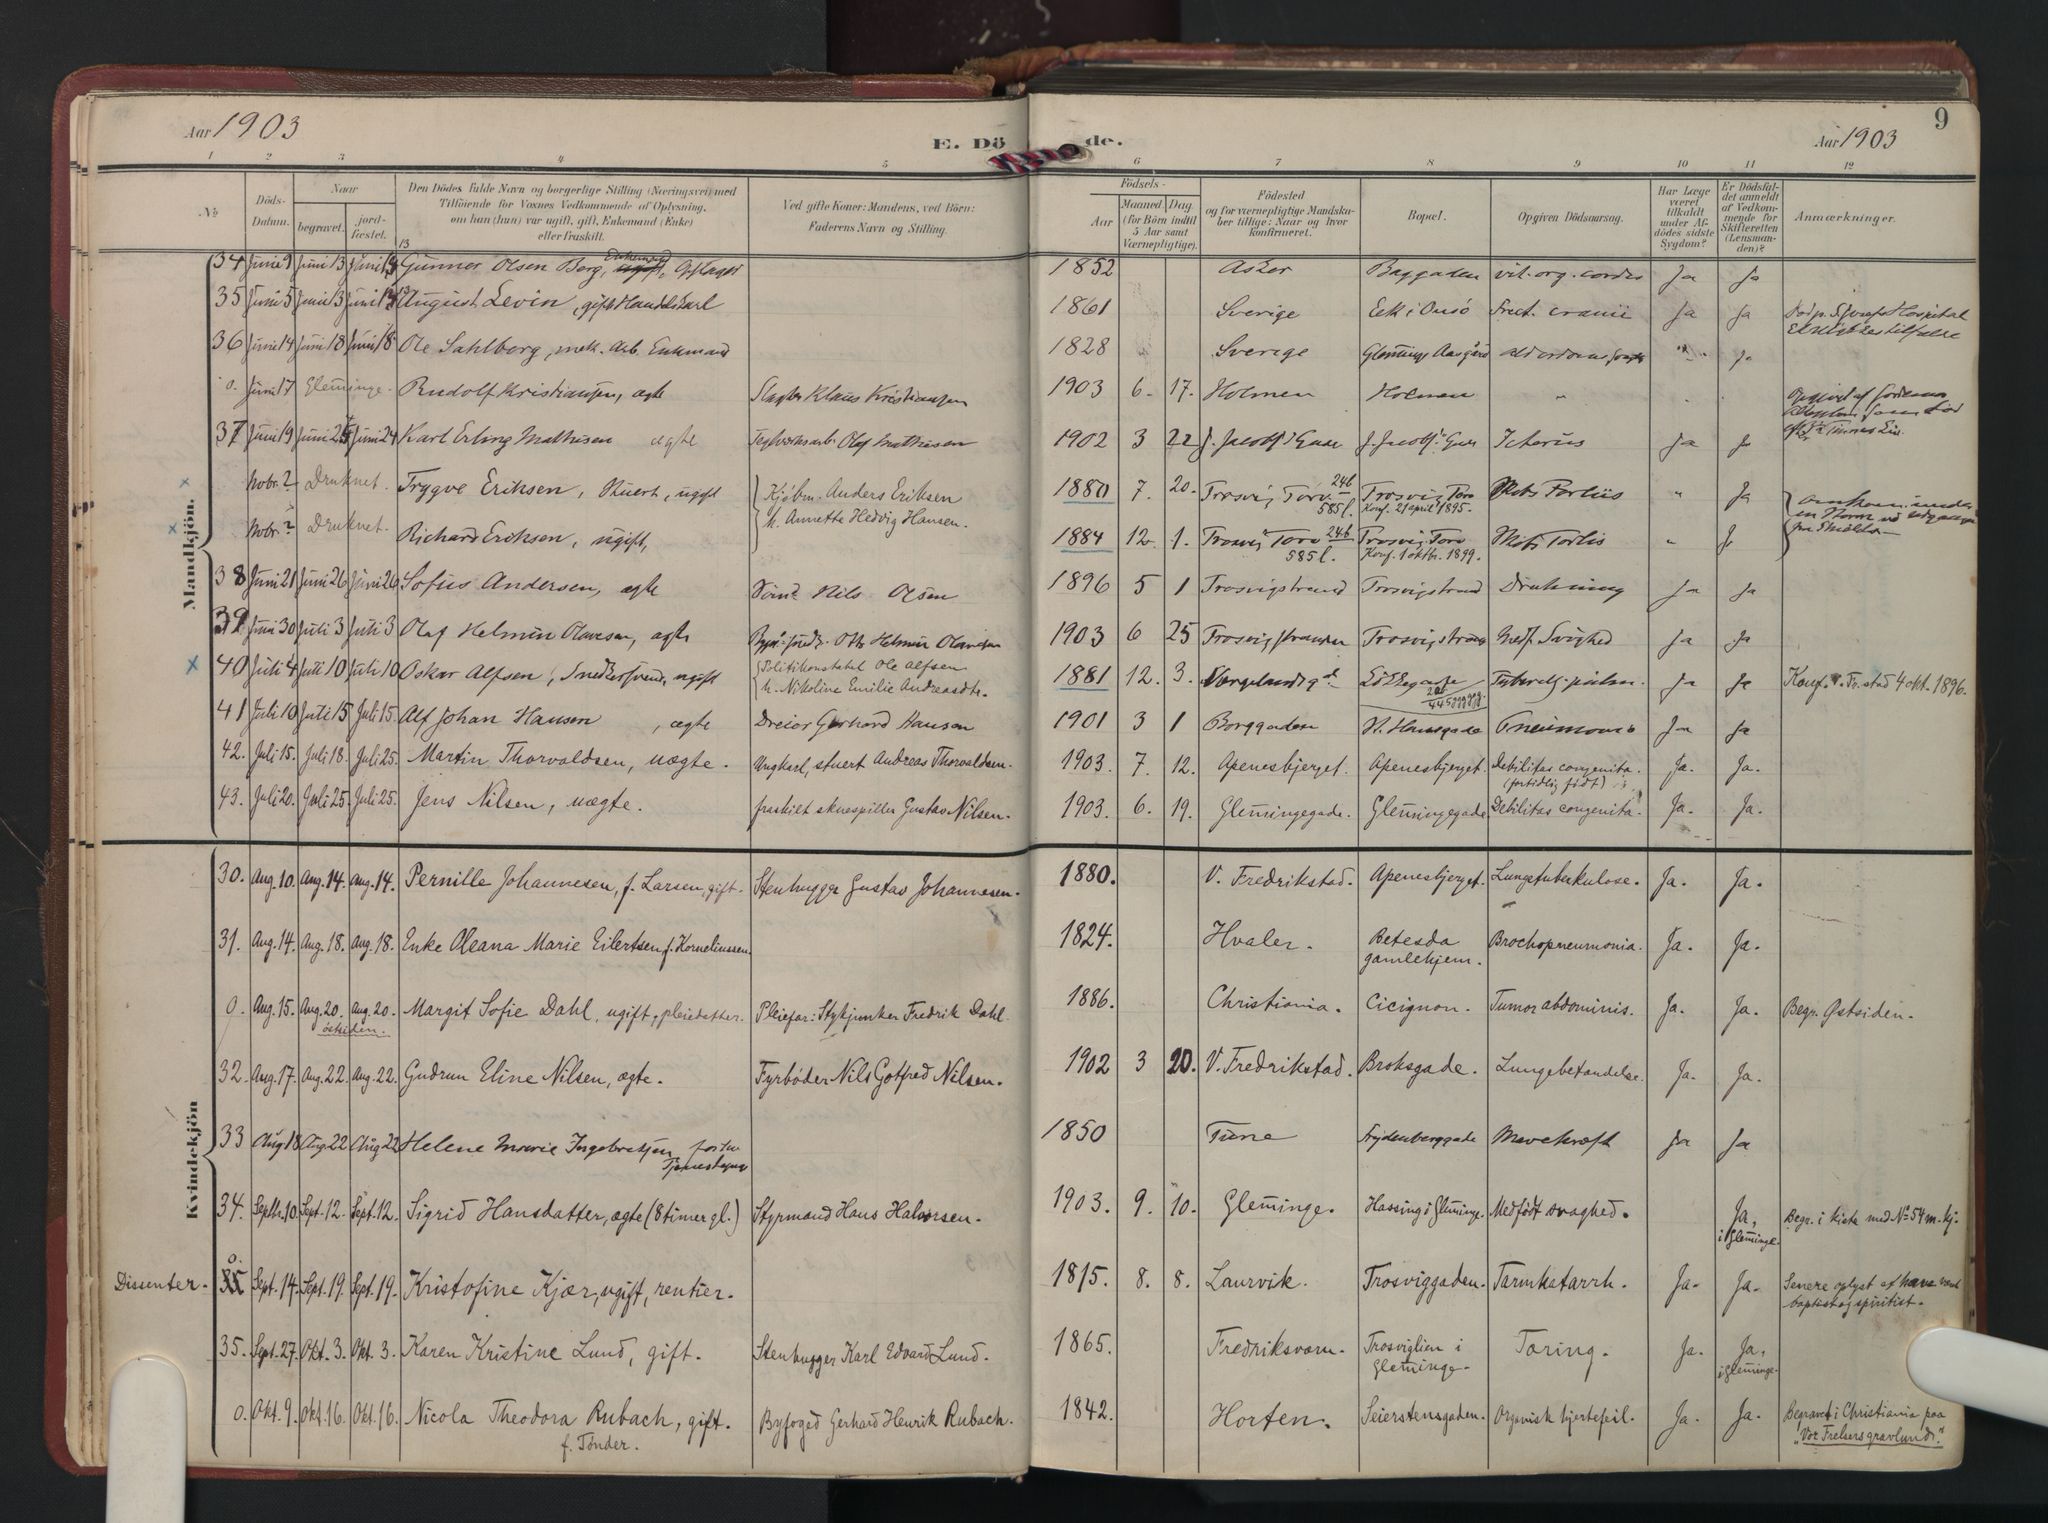 Aar 1903
E. Dö de.
Aar 1903
9
1 2 3 4 5 6 7 8 9 10 11 12
№
Döds-Datum.
Naar
begravet.
jord-fæstet.
Den Dödes fulde Navn og borgerlige Stilling (Næringsvei) med Tilföiende for Voxnes Vedkommende af Oplysning, om han (hun) var ugift, gift, Enkemand (Enke) eller fraskilt.
Ved gifte Koner: Mandens, ved Börn: Faderens Navn og Stilling.
Födsels-
Aar
Maaned. Dag.
(for Börn indtil 5 Aar samt Værnepligtige).
Födested
og for værnepligtige Mandskaber tillige: Naar og hvor konfirmeret.
Bopæl.
Opgiven Dödsaarsag.
Har Læge været tilkaldt under Afdödes sidste Sygdom?
Er Dödsfaldet anmeldt af Vedkommende for Skifteretten (Lensmanden)?
Anmærkninger.
Mandkjön.
34 Juni 9 Juni 13 Juni 13 Gunner Olsen Berg, Enkemand 1852 Asker Baggaden vit. org. cordis Ja Ja
35 Juni 5 Juni 13 Juni 13 August Levin, gift Handelskarl 1861 Sverige Eek i Onsö Fract. cranii Ja Ja
36 Juni 14 Juni 18 Juni 18 Ole Sahlberg, mek. Arb. Enkemand 1828 Sverige Glemminge Aasgård Ja
0. Juni 17 Glemminge Rudolf Kristiansen, ægte Slagter Klaus Kristiansen 1903 6. 17. Holmen Holmen "
37 Juni 19 Juni 24 Juni 24 Karl Erling Mathisen ægte Olaf Mathisen 1902 3 22 J. Jacobs Gade J. Jacobs Gade Icterus Ja Ja
Nobr. ? Druknet. Trygve Eriksen, Stuert, ugift Kjöbm. Anders Eriksen 1880 7. 20. Trosvig Toro 24b 585 l. Trosvig Toro Konf. 21 april 1895. " Ja
Nobr. ? Druknet. Richard Eriksen, ugift, h. Annette Hedvig Hansen. 1884 12. 1. Trosvig Toro 24b 585 l. Trosvig Toro Konf. 1 oktbr. 1899. " Ja
38 Juni 21 Juni 26 Juni 26 Sofus Andersen, ægte Nils Olsen 1896 5 1 Trosvigstrand Trosvigstrand Drukning Ja Ja
39 Juni 30 Juli 3 Juli 3 Olaf Helmin Olavesen, ægte Otto Helmin Olavesen 1903 6 25 Trosvigstranden Trosvigstrand Medf. Svaghed Ja Ja
40 Juli 4 Juli 10 Juli 10 Oskar Alfsen, Snedkersvend, ugift Politikonstabel Ole Alfsen h. Nikoline Emilie Andreasdtr. 1881 12. 3. Tubercl. pulm. Ja Ja Konf. Fr.stad 4 okt. 1896.
41 Juli 10 Juli 15 Juli 15 Alf Johan Hansen, ægte Dreier Gerhard Hansen 1901 3 1 Borggaden St. Hansgade Pneumonia Ja Ja
42. Juli 15. Juli 18. Juli 25. Martin Thorvaldsen, uægte. Ungkarl, stuert Andreas Thorvaldsen. 1903. 7. 12. Apenesbjerget. Apenesbjerget. Debilitas congenita. (fortidlig født) Ja. Ja.
43. Juli 20. Juli 25. Juli 25. Jens Nilsen, uægte. fraskilt skuespiller Gustav Nilsen. 1903. 6. 19. Glemmingegade. Glemmingegade Debilitas congenita. Ja. Ja.
Kvindekjön
30. Aug. 10. Aug. 14. Aug. 14. Pernille Johannesen, f. Larsen, gift. Stenhugger Gustav Johannesen. 1880. V. Fredrikstad. Apenesbjerget. Lungetuberkulose. Ja. Ja.
31. Aug. 14. Aug. 18. Aug. 18. Enke Oleana Marie Eilertsen f. Korneliussen. 1824. Hvaler. Betesda gamlehjem. Brochopneumonia. Ja. Ja.
0. Aug. 15. Aug. 20. østsiden. Aug. 20. Margit Sofie Dahl, ugift, pleiedatter. Pleiefar: Stykjunker Fredrik Dahl. 1886. Christiania. Cicignon. Tumor abdominis. Ja. Ja. Begr. Østsiden.
32. Aug. 17. Aug. 22. Aug. 22. Gudrun Eline Nilsen, ægte. Fyrbøder Nils Gotfred Nilsen. 1902 3 20. V. Fredrikstad. Broksgade. Lungebetændelse. Ja. Ja.
33 Aug. 18 Aug. 22 Aug. 22 Helene Marie Ingebretsen 1850 Tune Frydenberggade Mavekræft Ja Ja
34. Septb. 10. Sept. 12. Sept. 12. Sigrid Hansdatter, ægte (8 timer gl.) Styrmand Hans Halvorsen. 1903. 9. 10. Glemminge. Hassing i Glemminge. Medfødt svaghed. Ja, i Glemminge. Begr. i kiste med No 54 m. kj.
Dissenter. 0. 35 Sept. 14. Sept. 19. Sept. 19. Kristofine Kjær, ugift, rentier. 1815. 8. 8. Laurvik. Trosviggaden. Tarmkatarrh. Ja. Ja. Senere oplyst at have været baptist og spiritist.
35. Sept. 27. Okt. 3. Okt. 3. Karen Kristine Lund, gift. Stenhugger Karl Edvard Lund. 1865. Fredriksværn. Trosviglien i Glemminge. Tæring. Ja. Ja, i Glemminge.
0. Okt. 9. Okt. 16. Okt. 16. Nicola Theodora Rubach, gift. f. Tønder. Byfoged Gerhard Henrik Rubach. 1842. Horten. Seierstensgaden. Organisk hjertefeil. Ja. Ja. Begravet i Christiania paa "Vor Frelsers gravlund".